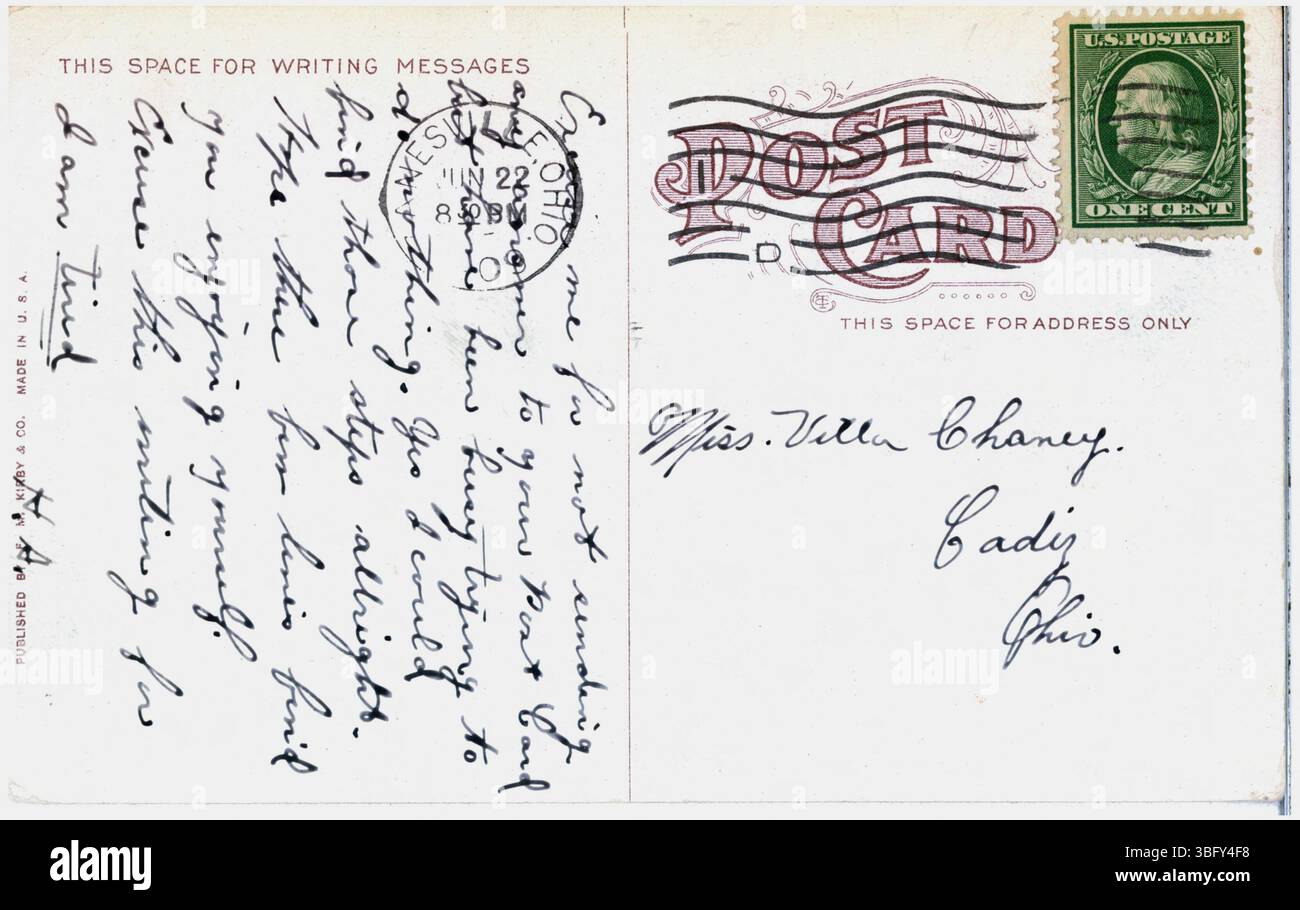 THIS SPACE FOR WRITING MESSAGES
Excuse me for not sending
any answer to your Post Card
but have been busy trying to
do nothing. Yes I could
find those steps allright.
Hope these few lines find
you enjoying yourself.
Excuse this writing for
I am Tired
H. A.
PUBLISHED BY F. M. KIRBY & CO. MADE IN U. S. A.
OHIO
22
POST
CARD
D
U.S. POSTAGE
ONE CENT
THIS SPACE FOR ADDRESS ONLY
Miss. Villa Chaney.
Cadiz
Ohio.
alamy
alamy
Image ID: 3BFY4F8
www.alamy.com